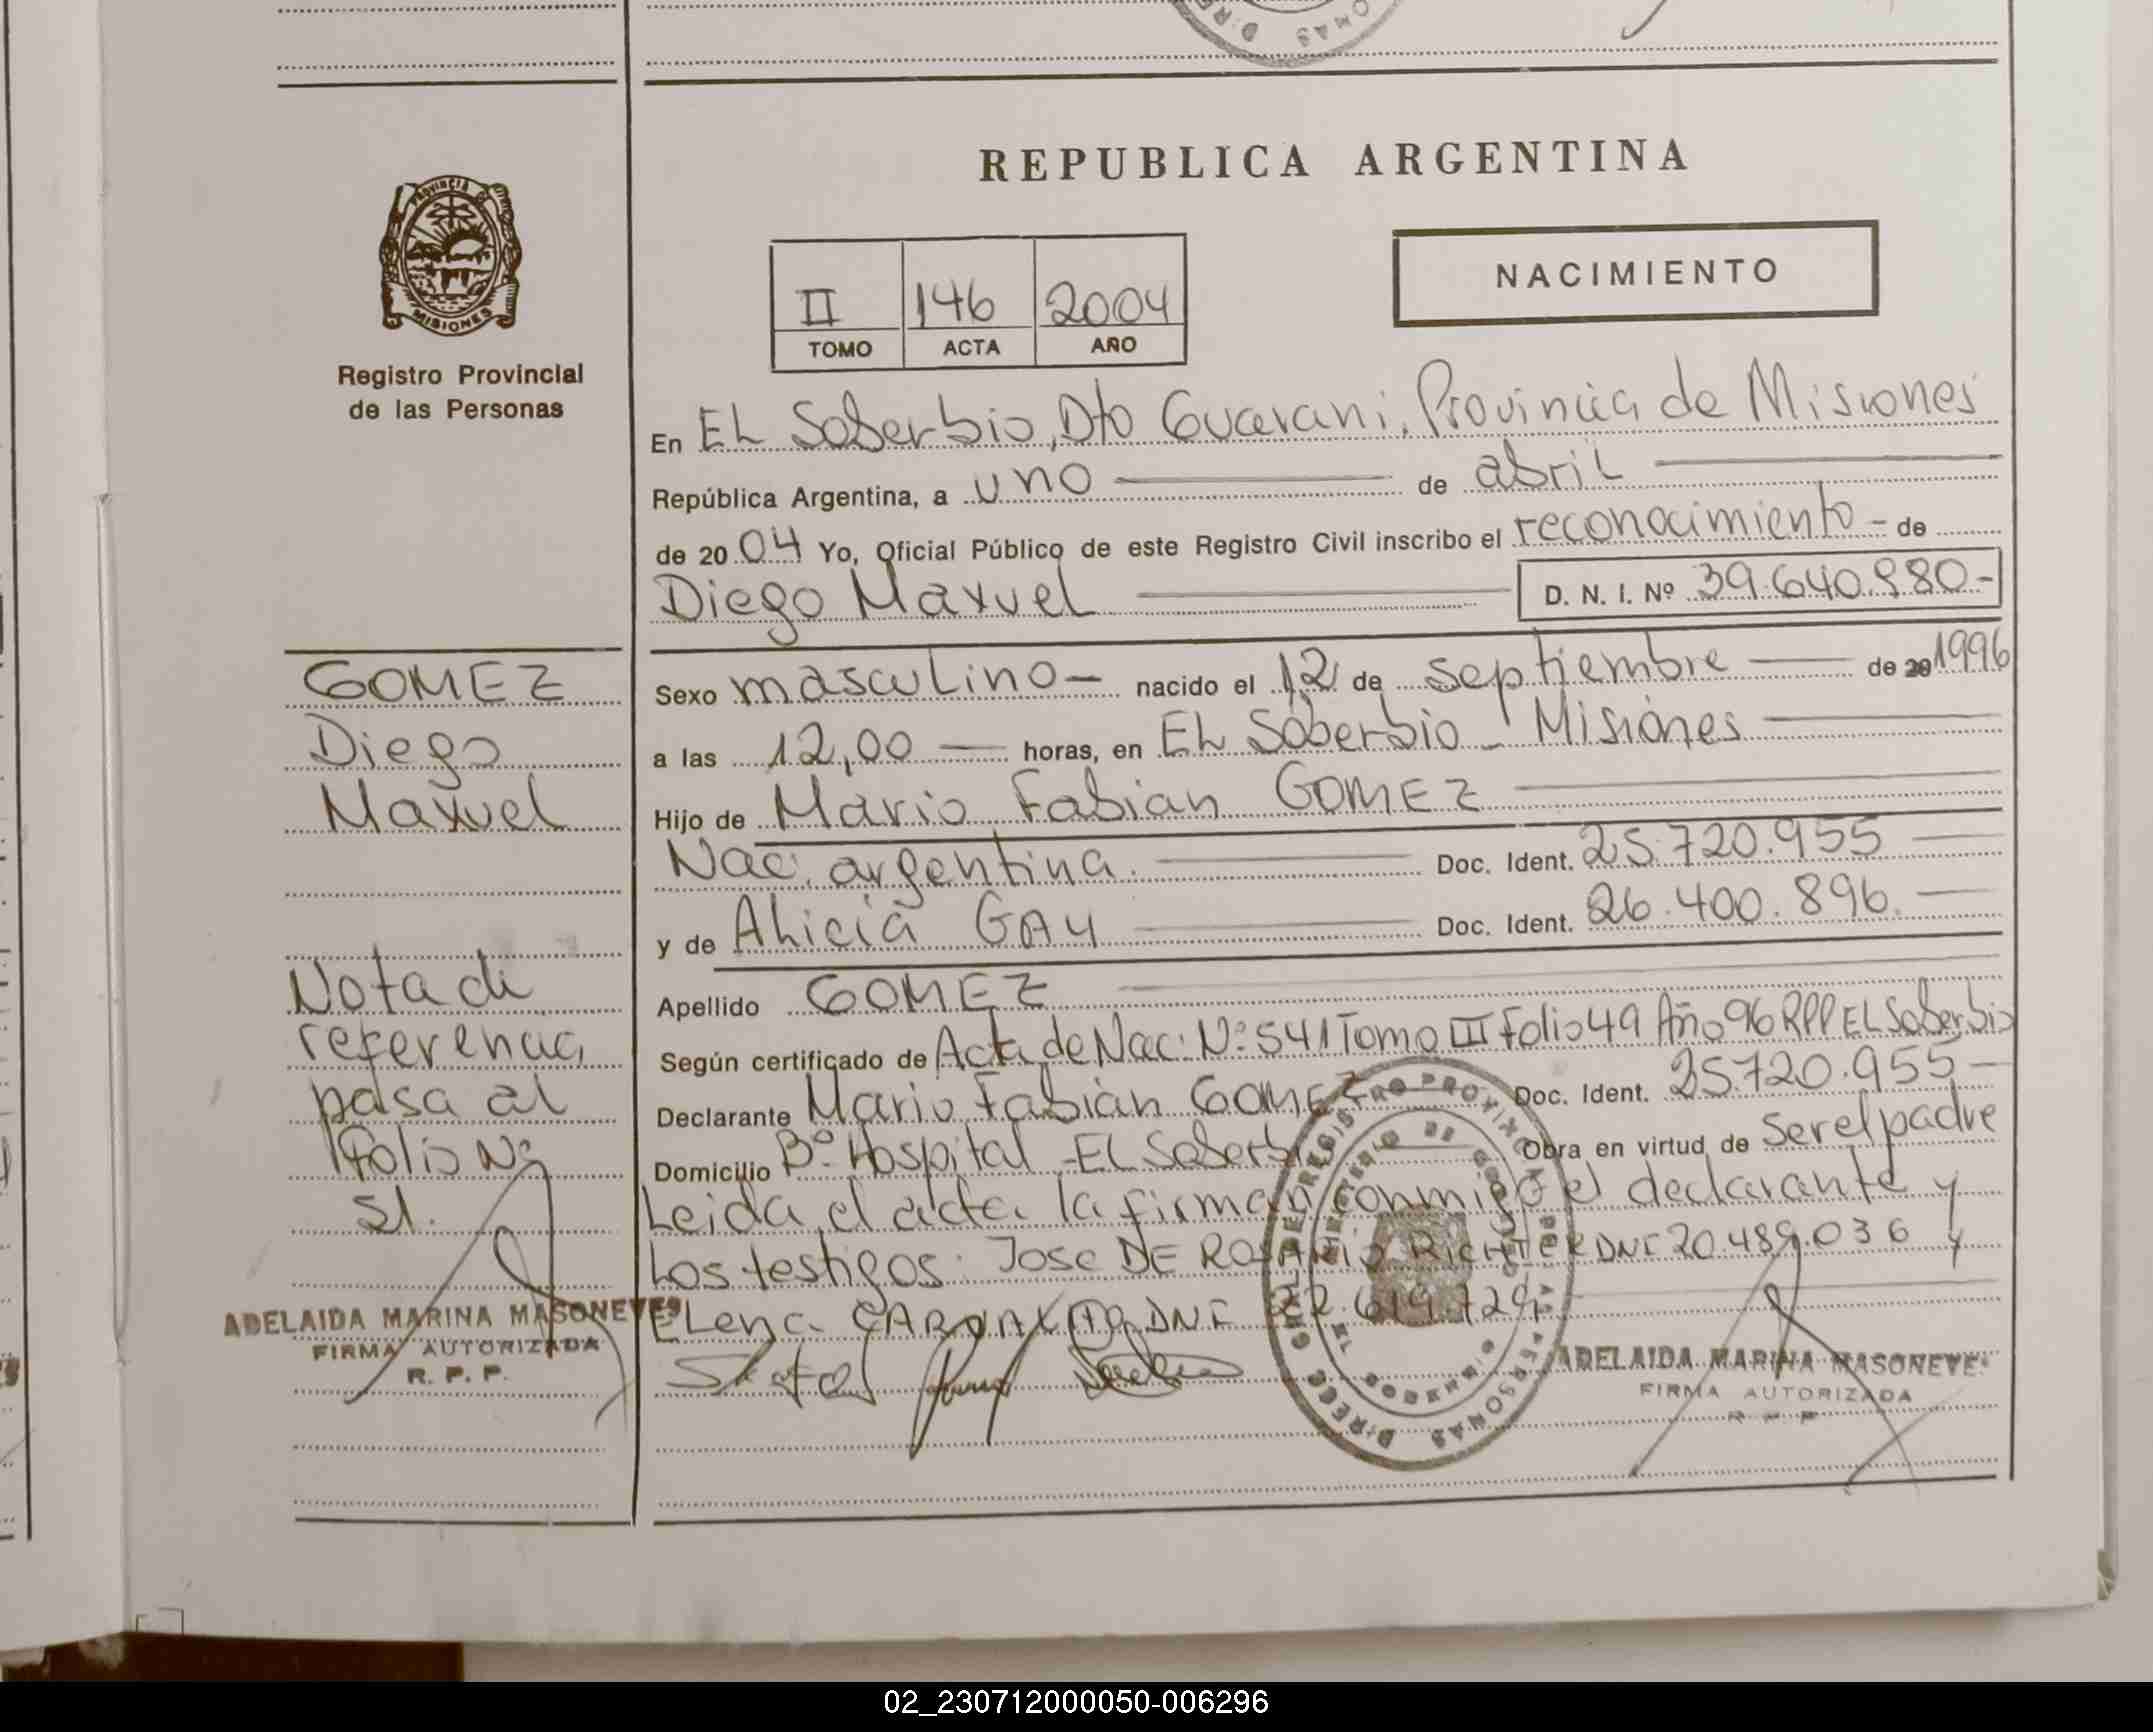 REPUBLICA ARGENTINA
NACIMIENTO
II 146 2004
TOMO ACTA AÑO
PROVINCIA DE MISIONES
Registro Provincial
de las Personas
En EL Soberbio, Dto Guarani, Provincia de Misiones
República Argentina, a uno de abril
de 2004 Yo, Oficial Público de este Registro Civil inscribo el reconocimiento - de
Diego Maxuel D. N. I. Nº 39.640.980-
GOMEZ
Diego
Maxuel
Sexo masculino- nacido el 12 de septiembre de 20 1996
a las 12,00 horas, en EL Soberbio - Misiones
Hijo de Mario Fabian GOMEZ
Nac. argentina. Doc. Ident. 25.720.955
y de Alicia GAY Doc. Ident. 26.400.896.
Apellido GOMEZ
Según certificado de Acta de Nac. Nº 541 Tomo III Folio 49 Año 96 RPP EL Soberbio
Declarante Mario Fabián GOMEZ Doc. Ident. 25.720.955-
Domicilio Bº Hospital - EL Soberbio Obra en virtud de ser el padre
Leida el acta la firman conmigo el declarante y
Los testigos: Jose DE ROSARIO RICHTER DNI 20.489.036 y
ELena DNI 22.614.729
Nota de
referencia
pasa al
Folio Nº
51.
ADELAIDA MARINA MASONEVES
FIRMA AUTORIZADA
R. P. P.
ADELAIDA MARINA MASONEVE
FIRMA AUTORIZADA
R. P. P.
02_230712000050-006296